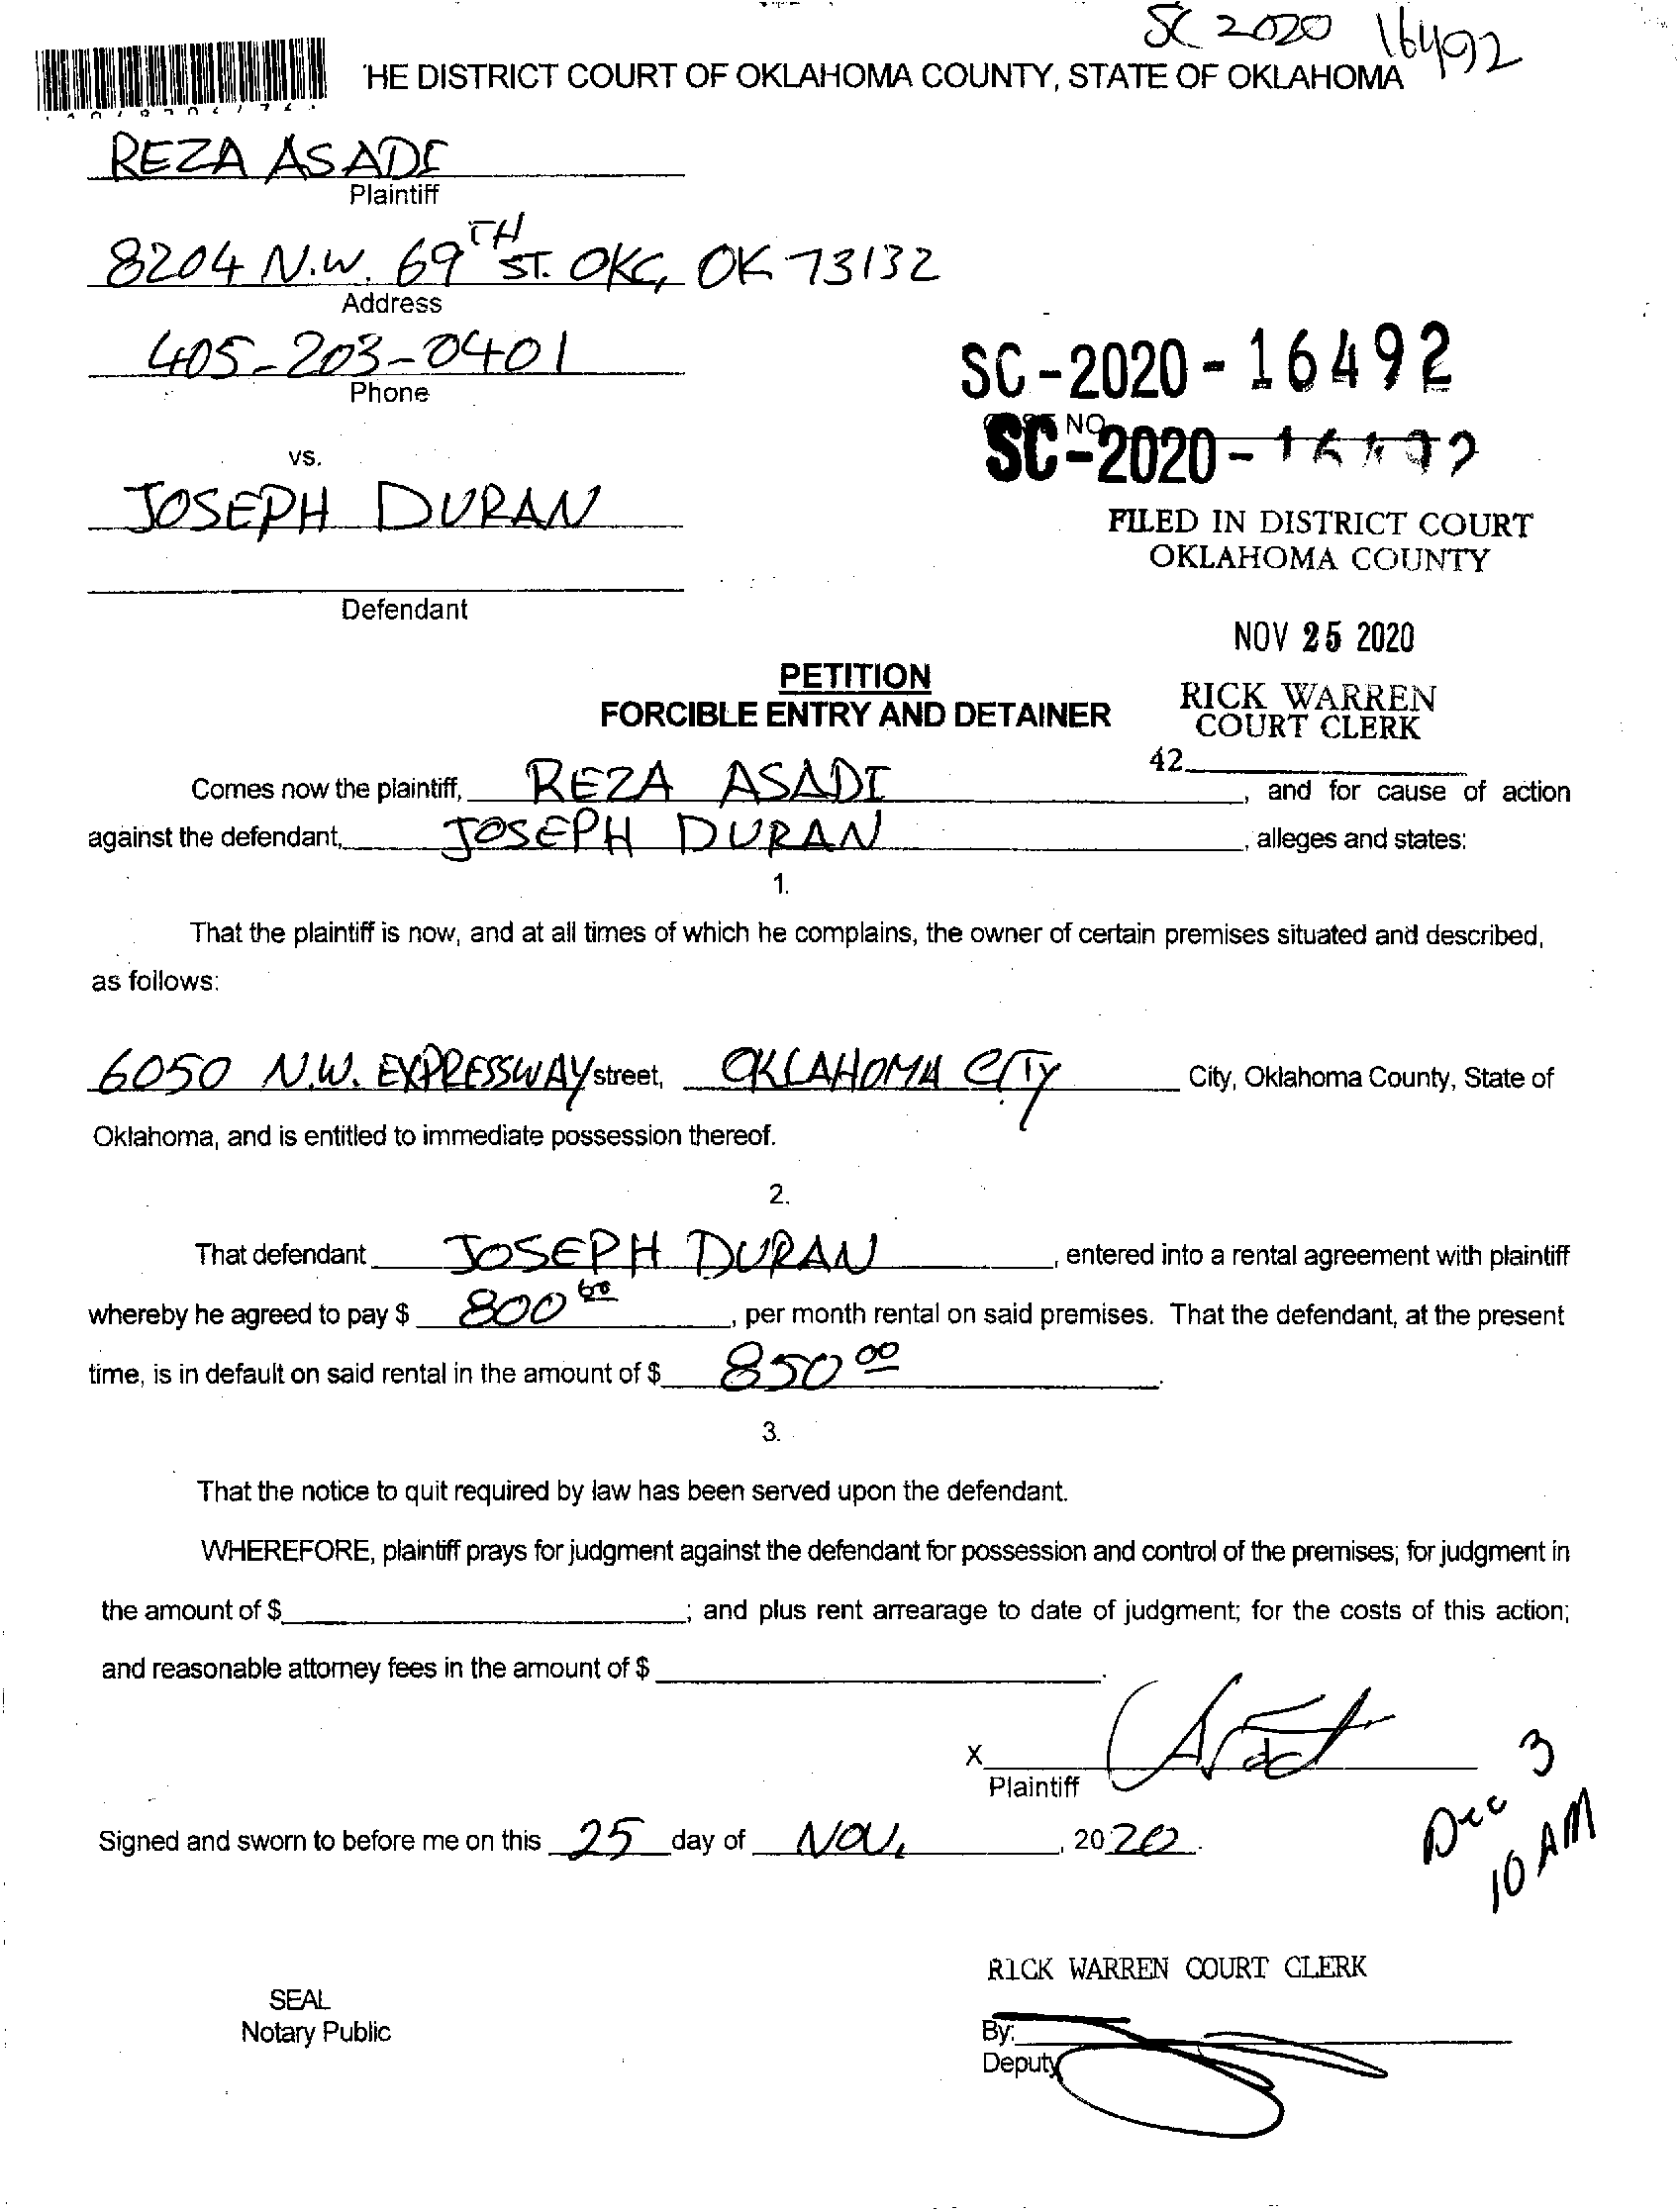 SC 2020 16492
'HE DISTRICT COURT OF OKLAHOMA COUNTY, STATE OF OKLAHOMA
REZA ASADI
Plaintiff
8204 N.W. 69TH ST. OKC, OK 73132
Address
405-203-0401
Phone
SC-2020-16492
NO.
SC-2020-16492
vs.
JOSEPH DURAN
FILED IN DISTRICT COURT
OKLAHOMA COUNTY
Defendant
NOV 25 2020
PETITION
FORCIBLE ENTRY AND DETAINER
RICK WARREN
COURT CLERK
42
Comes now the plaintiff, REZA ASADI, and for cause of action
against the defendant, JOSEPH DURAN, alleges and states:
1.
That the plaintiff is now, and at all times of which he complains, the owner of certain premises situated and described,
as follows:
6050 N.W. EXPRESSWAY street, OKLAHOMA CITY City, Oklahoma County, State of
Oklahoma, and is entitled to immediate possession thereof.
2.
That defendant JOSEPH DURAN, entered into a rental agreement with plaintiff
whereby he agreed to pay $ 800 00, per month rental on said premises. That the defendant, at the present
time, is in default on said rental in the amount of $ 850 00.
3.
That the notice to quit required by law has been served upon the defendant.
WHEREFORE, plaintiff prays for judgment against the defendant for possession and control of the premises; for judgment in
the amount of $ ; and plus rent arrearage to date of judgment; for the costs of this action;
and reasonable attorney fees in the amount of $ .
X
Plaintiff
Signed and sworn to before me on this 25 day of NOV, , 2020.
Dec 3
10 AM
RICK WARREN COURT CLERK
SEAL
Notary Public
By:
Deputy